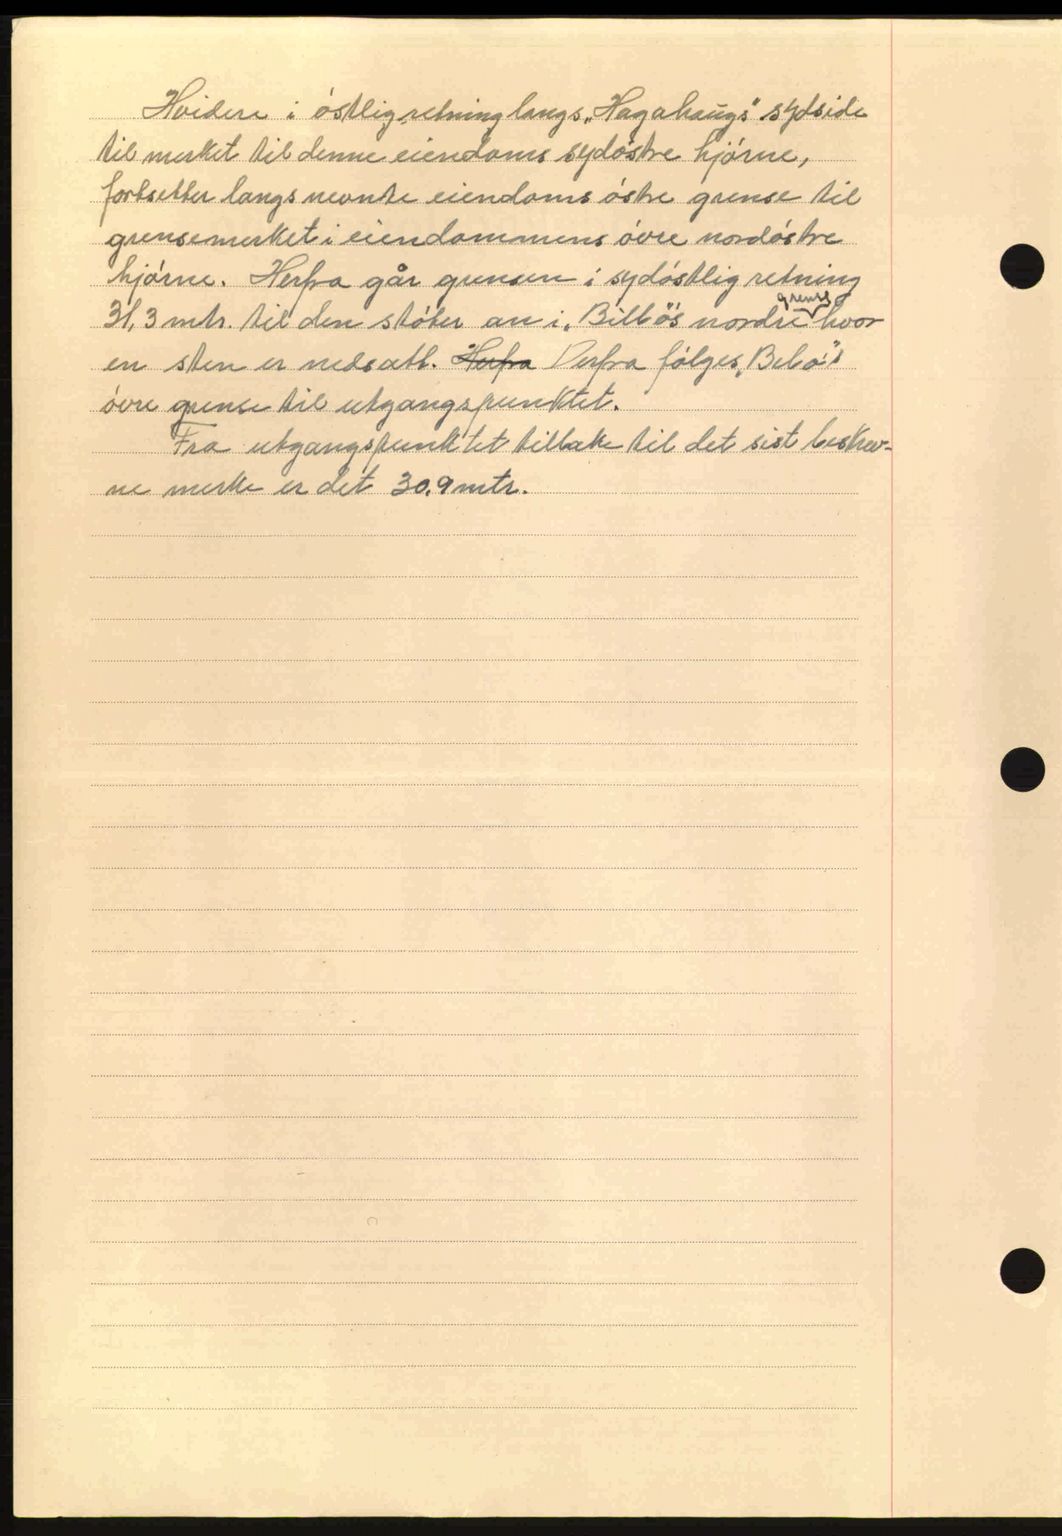 Hvidere i östlig retning langs „Hagahaugs" sydside
til merket til denne eiendoms sydöstre hjörne,
fortsetter langs nevnte eiendoms östre grense til
grensemerket i eiendommens övre nordöstre
hjörne. Herfra går grensen i sydöstlig retning
31,3 mtr. til den stöter an i „Bilbö"s nordre grense hvor
en sten er nedsatt. Herfra Derfra fölges „Bebö"s
övre grense til utgangspunktet.
Fra utgangspunktet tilbake til det sist beskrev-
ne merke er det 30.9 mtr.